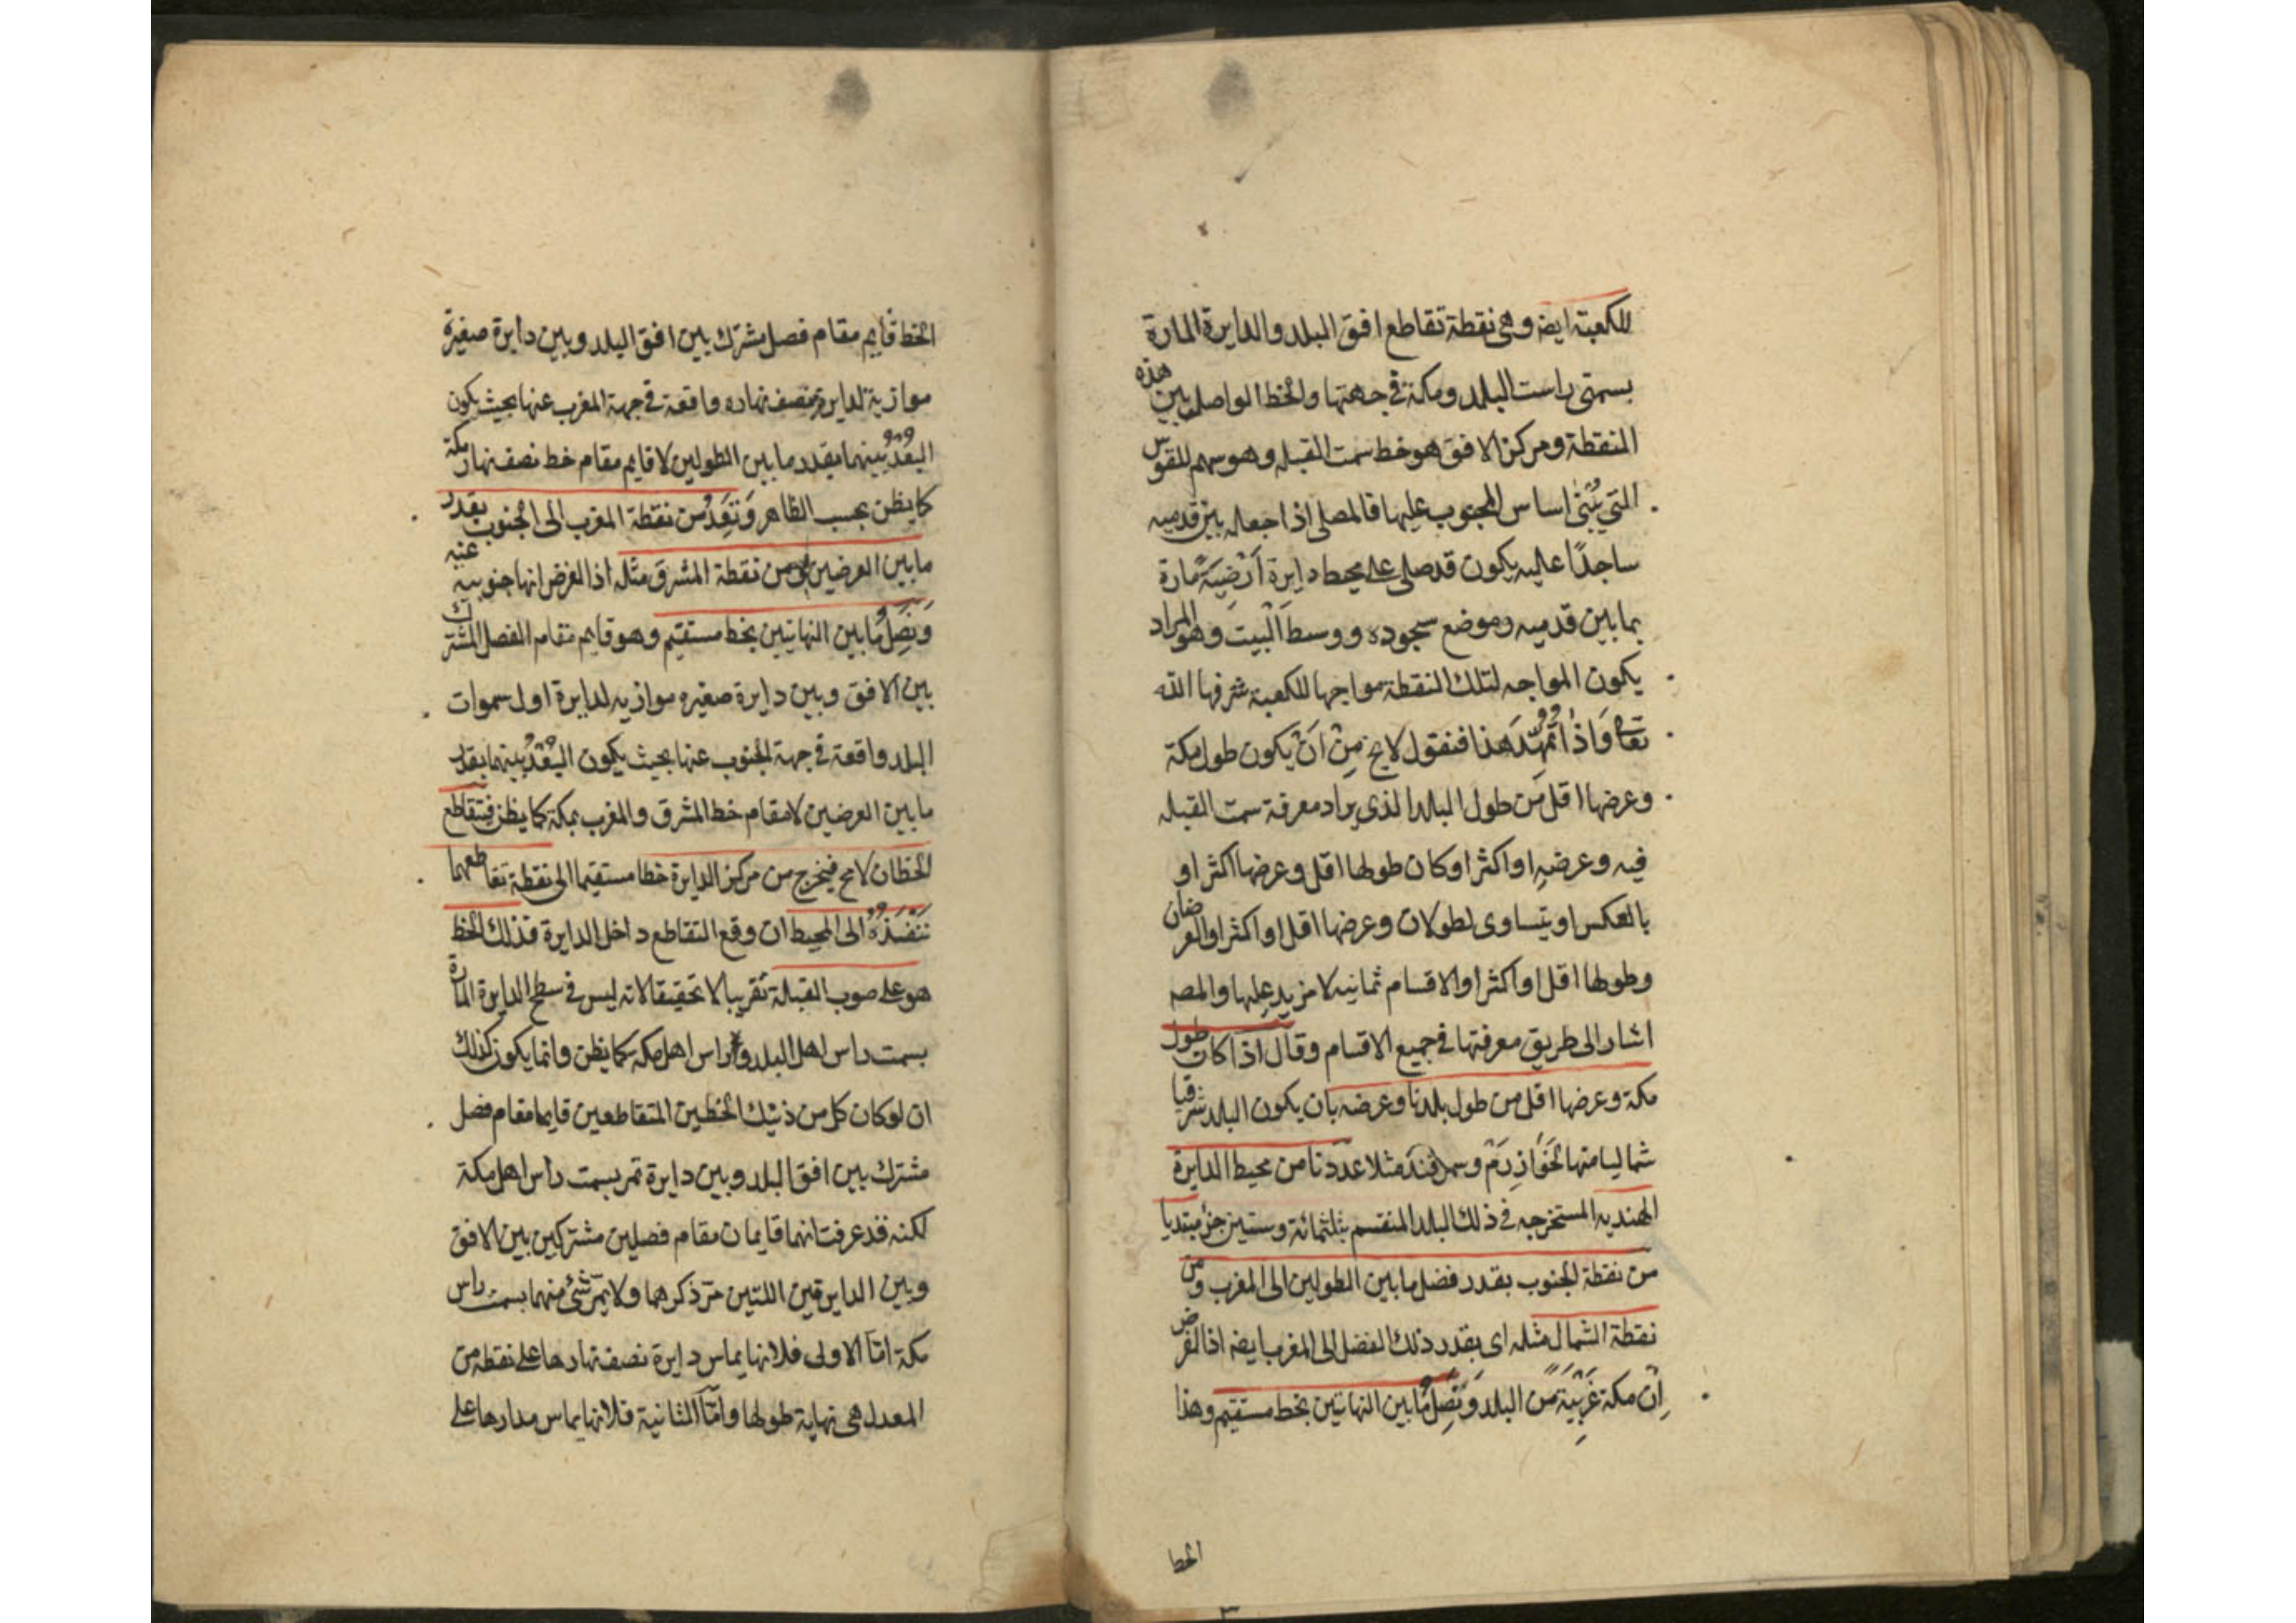 للكعبة ايضا وهى نقطة تقاطع افق البلد والدايرة المارة
بسمتى راست البلد ومكة فى جهتها والخط الواصل بين هذه
النقطة ومركز الافق هو خط سمت القبله وهو سهم للقوس
التي يُبْنى اساس المحبوب عليها فالمصلى اذا جعله بين قدميه
ساجدًا عليه يكون قد صلى على محيط دايرة اَرْضيَّة مارة
بما بين قدميه وموضع سجوده ووسط الْبيت وهو المراد
يكون المواجه لتلك النقطة مواجها للكعبة شرفها الله
تعا وَاذا تمهّد هذا فنقول لا يخ مِنْ اَنْ يكون طول مكة
وعرضها اقل من طول البلد الذى يراد معرفة سمت القبله
فيه وعرضه او اكثر او كان طولها اقل وعرضها اكثر او
بالعكس او يتساوى لطولان وعرضها اقل او اكثر او العرضان
وطولها اقل او اكثر او الاقسام ثمانيه لا مزيد عليها والمصه
اشار الى طريق معرفتها فى جميع الاقسام وقال اذا كان طول
مكة وعرضها اقل من طول بلدنا وعرضه بان يكون البلد شرقيا
شماليا منها لخَوَازِرَمْ وسمرقند مثلا عددنا من محيط الدايرة
الهنديه المستخرجه فى ذلك البلد المنقسم بثلثمائة وستين جزء مبتديا
من نقطة الجنوب بقدر فضل ما بين الطولين الى المغرب ومن
نقطة الشمال مثله اى بقدر ذلك الفضل الى المغرب ايضه اذ الفرض
اِنّ مكة غَرْبيَّة مَن البلد وَنَصِلُ مَا بين النهايتين بخط مستقيم وهذا
الخط
الخط قايم مقام فصل مشترك بين افق البلد وبين دايرة صغيرة
موازية لدايرة نصف نهاره واقعة فى جهة المغرب عنها بحيث يكون
البُعْدُ بينهما بقدر ما بين الطولين لا قايم مقام خط نصف نهار مكة
كما يظن بحسب الظاهر وَنَعِدُ من نقطة المغرب الى الجنوب بقدر
ما بين العرضين ومن نقطة المشرق مثله اذ الغرض انها جنوبيه عنه
وَنَصِلُ مَا بين النهايتين بخط مستقيم وهو قايم مقام الفصل المشترك
بين الافق وبين دايرة صغيره موازيه لدايرة اول سموات
البلد واقعة فى جهة الجنوب عنها بحيث يكون البُعْدُ بينهما بقدر
ما بين العرضين لا مقام خط المشرق والمغرب بمكة كما يظن فيتقاطع
الخطان لا مح فيخرج من مركز الدايرة خطا مستقيما الى نقطة تقاطعهما
نَنْفِذُهُ الى المحيط ان وقع التقاطع داخل الدايرة فذلك الخط
هو على صوب القبلة تقريبا لا تحقيقا لانه ليس فى سطح الدايرة المارة
بسمت راس اهل البلد وراس اهل مكه كما يظن وانما يكون كذلك
ان لو كان كل من ذينك الخطين المتقاطعين قايما مقام فصل
مشترك بين افق البلد وبين دايرة تمر بسمت راس اهل مكة
لكنه قد عرفت انهما قايمان مقام فصلين مشتركين بين الافق
وبين الدايرتين اللتين مرّ ذكرهما ولا يمرّ شئ منهما بسمت راس
مكة امّا الاولى فلانها يماس دايرة نصف نهارها على نقطة من
المعدل هى نهاية طولها وامّا الثانية فلانها يماس مدارها على